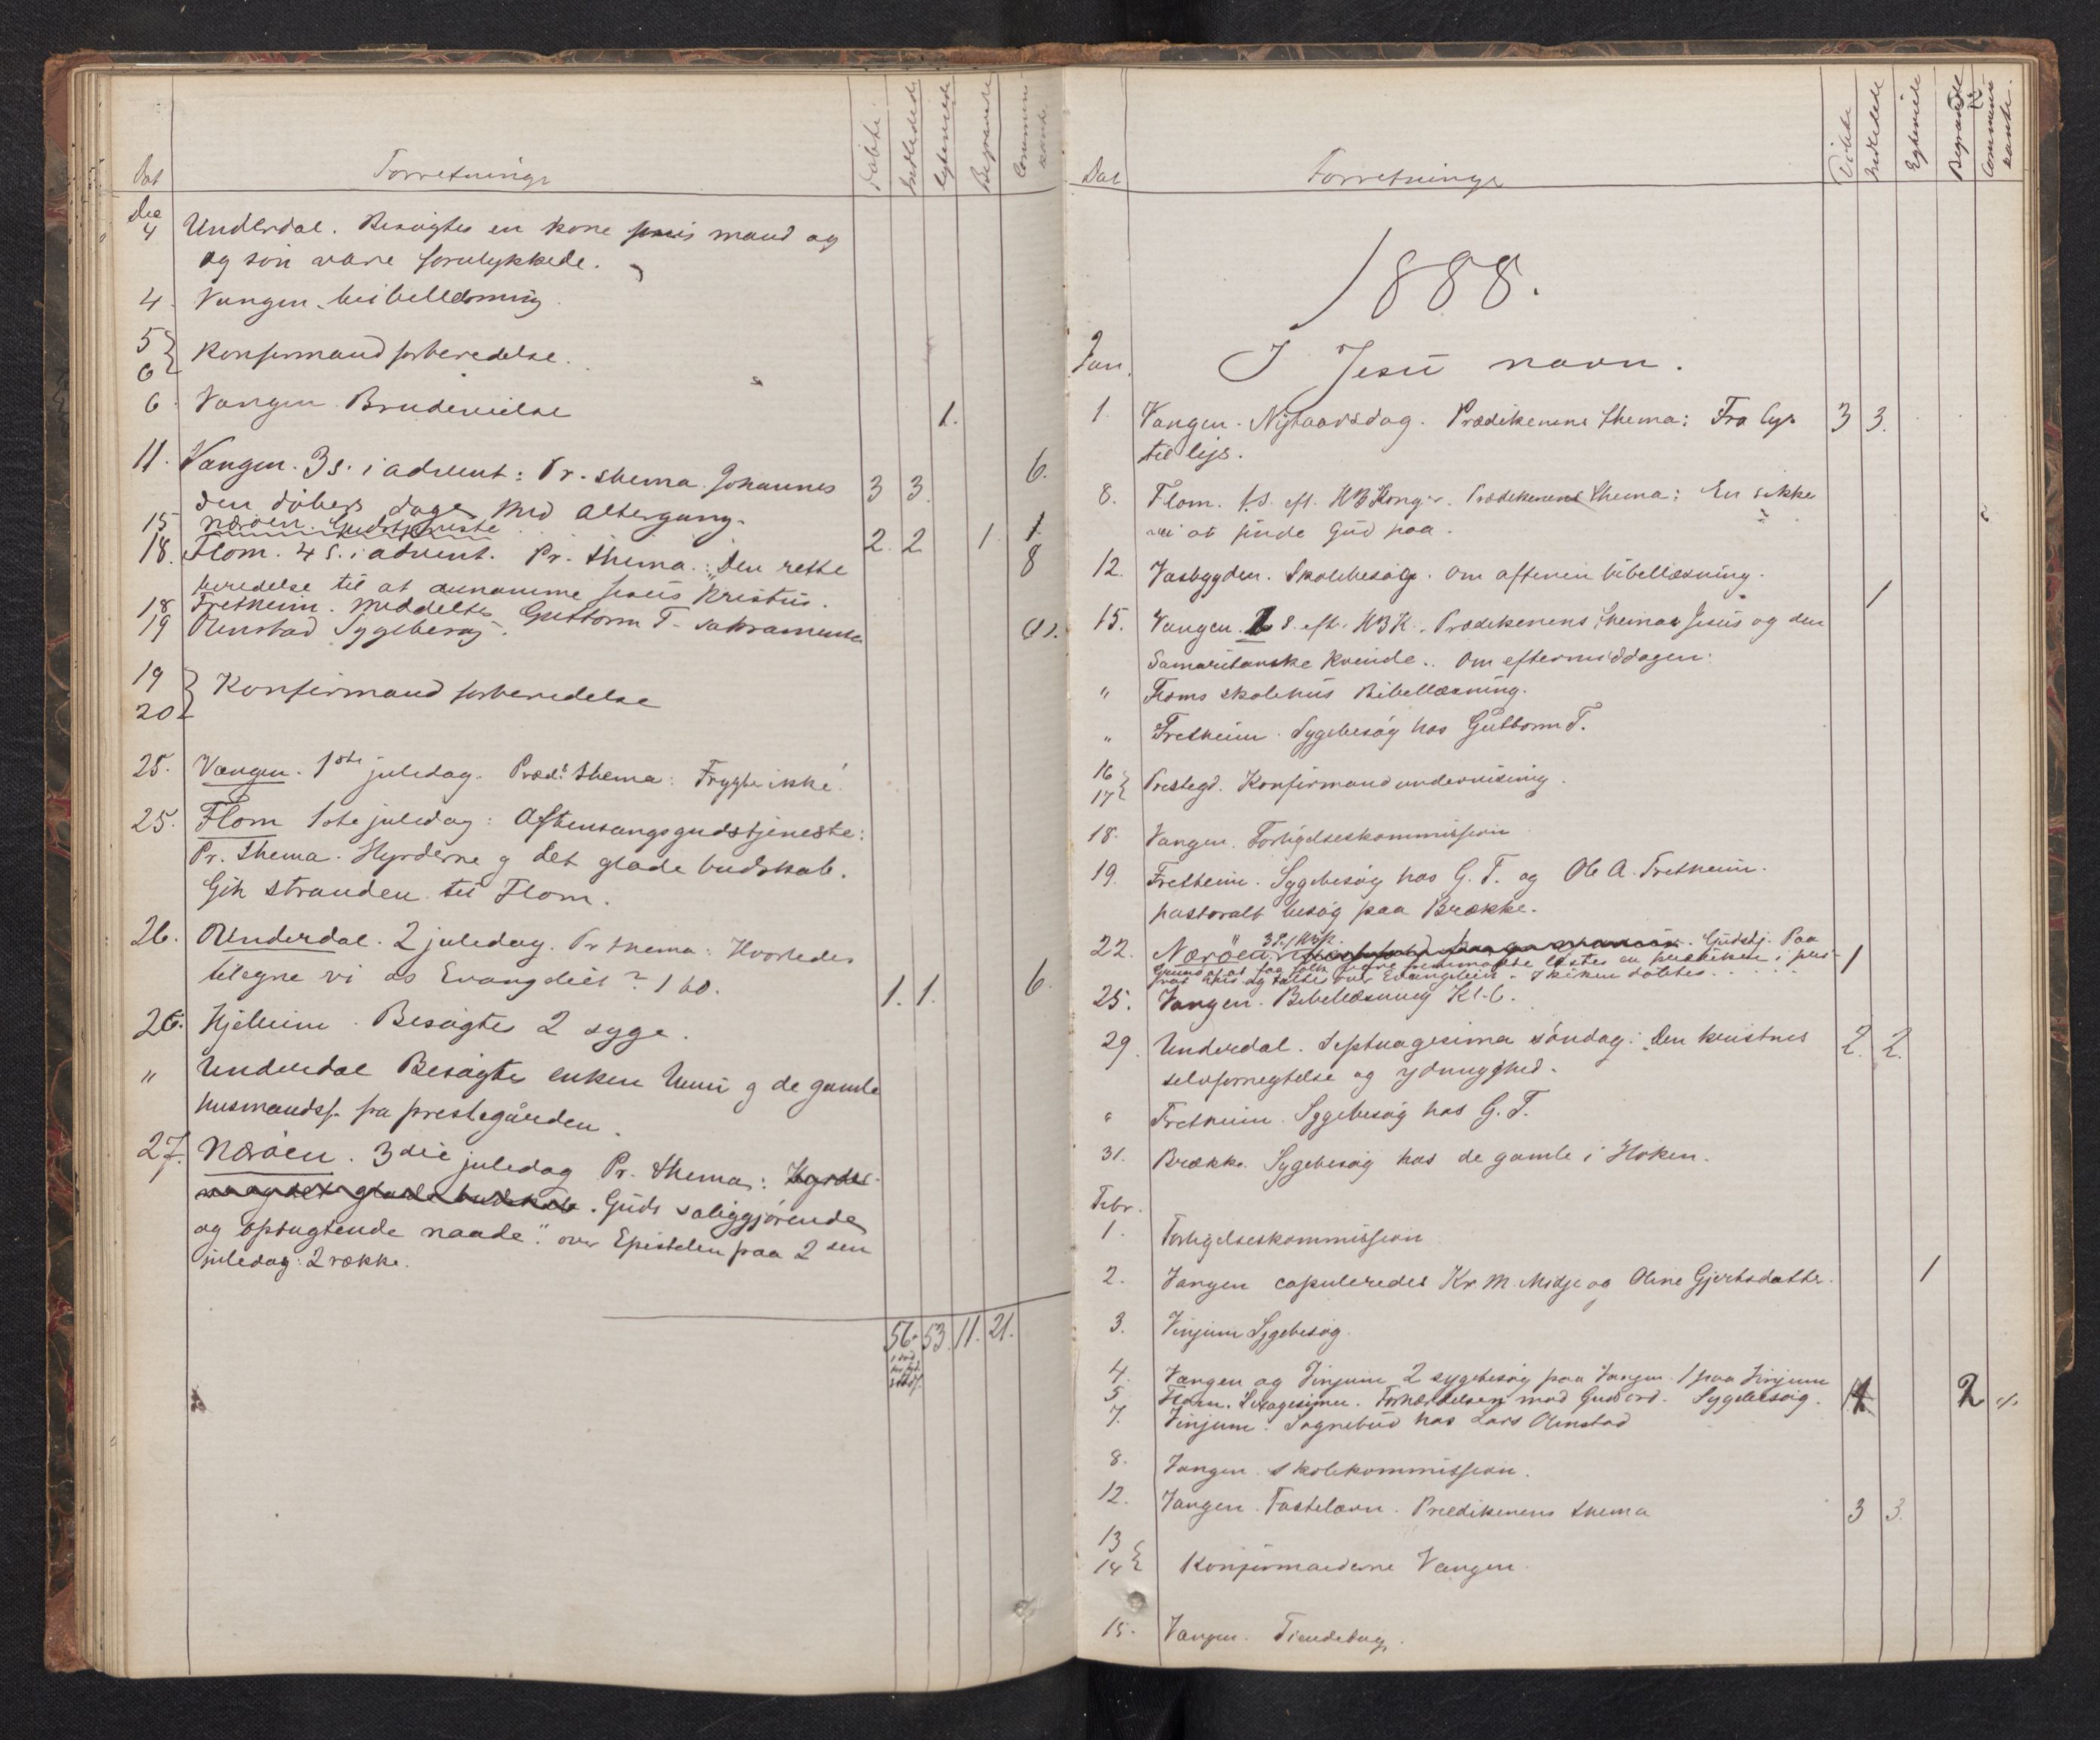 Dat
Forretninge
Døbte
Indledede
Egteviede
Begravede
Commun
kante
Dec
4 Underdal. Besøgtes en kone hvis mand og
og søn vare forulykkede.
4. Vangen bibellæsning.
5
6 } Konfirmandforberedelse.
6. Vangen Brudevielse 1.
11. Vangen. 3 s. i advent: Pr. thema Johannes 3 3. 6.
den døbers dage Med altergang.
15 Nærøen. Gudstjeneste 2. 2 1 1.
18. Flom. 4 S. i advent. Pr. thema: "Den rette 8
beredelse til at annamme Jesus Kristus.
18 Fretheim. Meddeltes Guttorm F. sakramentet
19 Otnstad Sygebesøg.
19
20 } Konfirmandforberedelse
25. Vangen. 1ste juledag. Præd. thema: Frygte ikke!
25. Flom 1ste juledag: Aftensangsgudstjeneste:
Pr. thema. Hyrderne og det glade budskab.
Gik stranden til Flom.
26. Underdal. 2 juledag. Pr thema: Hvorledes
tilegne vi os Evangeliet? 1. 1. 6.
26. Hjelleim. Besøgtes 2 syge.
" Underdal Besøgtes enken Unni og de gamle
husmandsf. fra prestegården.
27. Nærøen. 3die juledag Pr. thema: Hyrder
ne og det glade budskab. Guds saliggjørende
og optugtende naade". over Epistelen paa 2den
juledag: 2 række.
56. 53. 11. 21.
Dat
Forretninge
Døbte
Indledede
Egteviede
Begravede
Communi
kante.
1888.
Jan. I Jesu navn.
1. Vangen. Nytaarsdag. Prædikenens thema: Fra lys 3 3.
til lys.
8. Flom. 1 S. eft. H3Konger. Prædikenens thema: En sikker
vei at finde Gud paa.
12. Vasbygden. Skolebesøg. Om aftenen bibellæsning.
1
15. Vangen. 2 S. eft. H3K. Prædikenens thema Jesus og den
Samaritanske Kvinde. Om eftermiddagen:
" Floms skolehus Bibellæsning.
" Fretheim. Sygebesøg hos Guttorm F.
16
17 } Prestegd. Konfirmandundervisning.
18. Vangen. Forligelseskommission
19. Fretheim. Sygebesøg hos G. F. og Ole A. Fretheim.
pastoralt besøg paa Brække.
22. Nærøen. 3 S. / H3K. Gudstj. Paa
Grund af at faa folk fremmødte læstes en prædiken i pri- 1
vat hus og taltes over Evangeliet. I kirken døbtes . . . . .
25. Vangen. Bibellæsning Kl. 6.
29. Underdal. Septuagesima søndag: Den kristnes 2. 2.
selvfornegtelse og ydmyghed.
" Fretheim. Sygebesøg hos G. F.
31. Brække. Sygebesøg hos de gamle i Hoken.
Febr.
1. Forligelseskommission
2. Vangen copuleredes Kr. M. Midje og Oline Gjertsdatter. 1
3. Vinjum Sygebesøg.
4. Vangen og Vinjum 2 sygebesøg paa Vangen 1 paa Vinjum
5. Flom. Sexagesima. Forhærdelsen mod Guds ord. Sygebesøg. 2
7. Vinjum. Sognebud hos Lars Otnstad
8. Vangen skolekommission.
12. Vangen. Fastelavn. Prædikenens thema 3 3.
13
14 } Konfirmanderne Vangen
15. Vangen. Tiendetag.